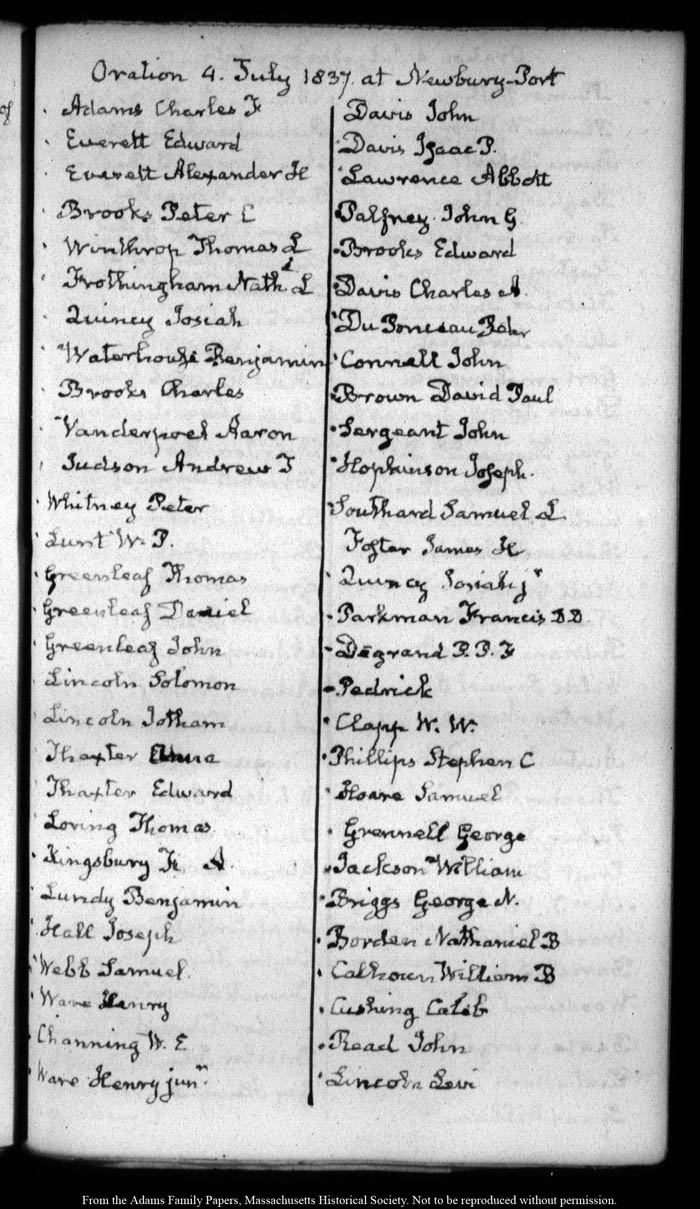 Oration 4. July 1837. at Newbury-Port
Adams Charles F
Everett Edward
Everett Alexander H
Brooks Peter C
Winthrop Thomas L
Frothingham Nathl L
Quincy Josiah
Waterhouse Benjamin
Brooks Charles
Vanderpoel Aaron
Judson Andrew T
Whitney Peter
Lunt W. P.
Greenleaf Thomas
Greenleaf Daniel
Greenleaf John
Lincoln Solomon
Lincoln Jotham
Thaxter
Thaxter Edward
Loring Thomas
Kingsbury A.
Lundy Benjamin
Hall Joseph
Webb Samuel.
Ware Henry
Channing W. E
Ware Henry junr.
Davis John
Davis Isaac P.
Lawrence Abbott
Palfrey John G.
Brooks Edward
Davis Charles A
Du Ponceau Peter
Connell John
Brown David Paul
Sergeant John
Hopkinson Joseph.
Southard Samuel L.
Foster James H
Quincy Josiah jr
Parkman Francis D.D.
Degrand P. P. F
Pedrick
Clapp W. W.
Phillips Stephen C
Hoare Samuel
Grennell George
Jackson William
Briggs George N.
Borden Nathaniel B
Calhoun William B
Cushing Caleb
Read John
Lincoln Levi
of
From the Adams Family Papers, Massachusetts Historical Society. Not to be reproduced without permission.